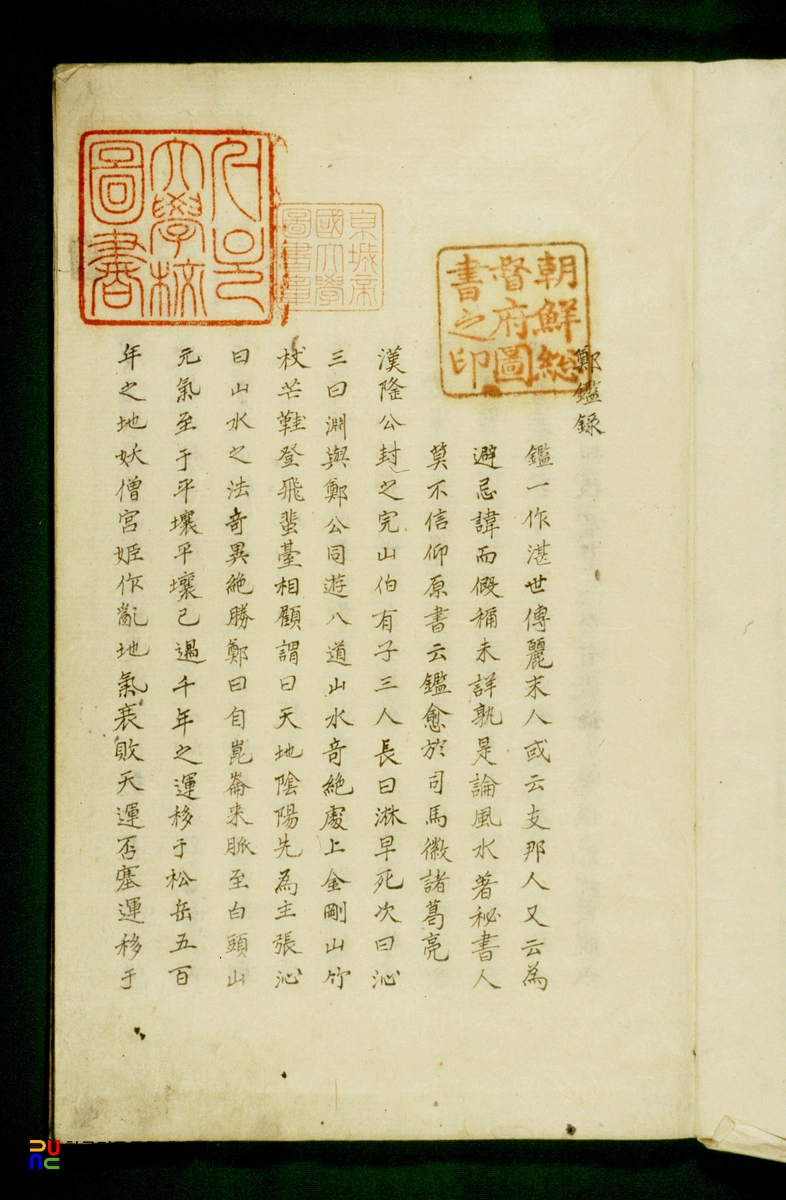 鄭鑑録
鑑一作湛世傳麗末人或云支那人又云為
避忌諱而假稱未詳孰是論風水著秘書人
莫不信仰原書云鑑愈於司馬徽諸葛亮
漢隆公封之完山伯有子三人長曰淋早死次曰沁
三曰淵與鄭公同遊八道山水奇絶處上金剛山竹
杖芒鞋登飛蜚臺相顧謂曰天地陰陽先為主張沁
曰山水之法奇異絶勝鄭曰自崑崙来脈至白頭山
元氣至于平壤平壤已過千年之運移于松岳五百
年之地妖僧宮姫作亂地氣衰敗天運否塞運移于
朝鮮総
督府圖
書之印
京城帝
國大學
圖書章
大學校
圖書